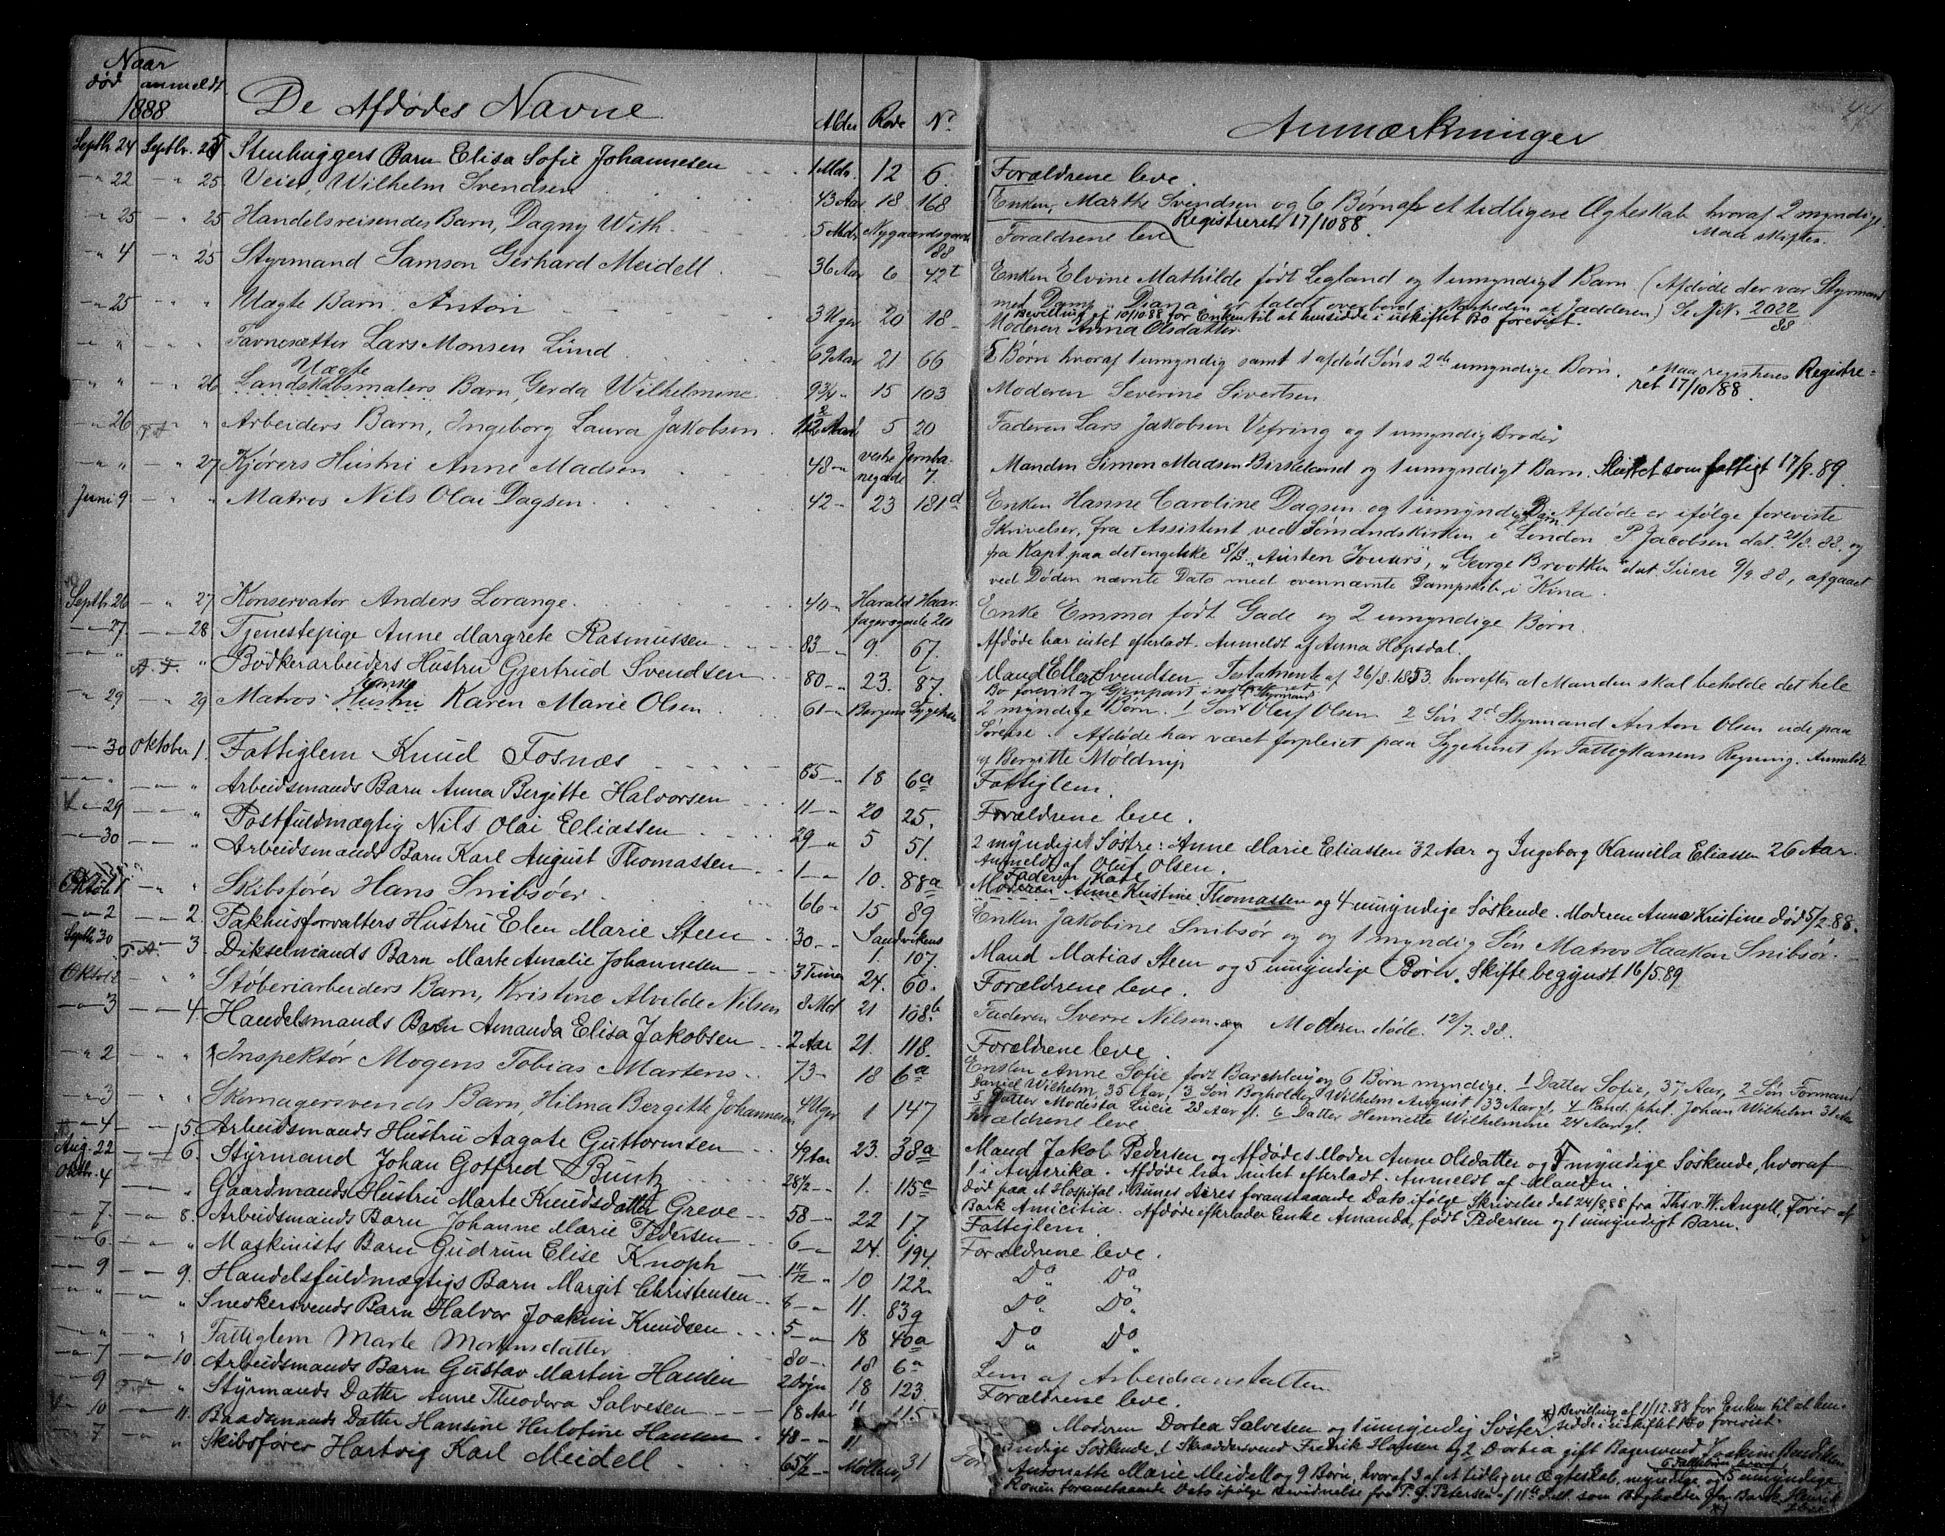 Naar
død anmeldt
1888
De Afdødes Navne
Alder Rode No
Anmærkninger
44
Septbr 24 Septbr. 25 Stenhuggers Barn Elisa Sofie Johannesen 1 Mdr. 12 6. Forældrene leve.
22 25. Veier, Wilhelm Svendsen 43 Aar 18 168 Enken, Marthe Svendsen og 6 Børn af et tidligere Ægteskab hvoraf 2 myndige.
Registreret 17/10 88. Maa skiftes.
25 25 Handelsreisendes Barn, Dagny With. 5 Mdr Nygaardsgaden 88 Forældrene leve
4 25 Styrmand Samson Gerhard Meidell. 36 Aar 6 42 Enken Elvine Mathilde født Legland og 1 umyndigt Barn (Afdøde der var Styrmand
med Damp. "Diana" er faldt overbord i Nærheden af Jædderen) Se J. No. 2022/88
Bevilling af 10/10 88 for Enken til at hensidde i uskiftet Bo forevist.
25 " Uægte Barn Anton 3 Uger 20 18 Moderen Anna Olsdatter.
" " Favnesætter Lars Monsen Lind 69 Aar 21 66 5 Børn hvoraf 1 umyndig samt 1 afdød Søns 2de umyndige Børn. Maa registreres Registre-
ret 17/10/88.
Uægte
" " 26 Landskabsmalers Barn Gerda Wilhelmine 9¾ " 15 103 Moderen Severine Sivertsen
26 " Arbeiders Barn, Ingeborg Laura Jakobsen 5 20 Faderen Lars Jakobsen Vefring og 1 umyndig Broder
" " 27 Kjørers Hustru Anne Madsen 48 " vestre Jernba-negade 7. Manden Simon Madsen Birkeland og 1 umyndigt Barn. Sluttet som fattigt 17/9.89.
Juni 9 " Matros Nils Olai Dagsen. 42 23 181d Enken Hanne Caroline Dagsen og 1 umyndig Barn. Afdøde er ifølge foreviste
Skrivelser, fra Assistent ved Sømandskirken i London P. Jacobsen dat. 21/8. 88. og
fra Kapt. paa det engelske S/S. "George Brootken" dat 9/9 88, afgaaet
ved Døden nævnte Dato med ovennævnte Dampskib, i Kina.
Septbr. 26 27 Konservator Anders Lorange. 40 " Harald Haar-fagersgade 20 Enke Emma født Gade og 2 umyndige Børn.
27. 28 Tjenestepige Anne Margrete Rasmussen 83 9. 67. Afdøde har intet efterladt. Anmeldt af Anna Hopsdal.
" " Bødkerarbeiders Hustru Gjertrud Svendsen 80 23. 87. Mand Ellert Svendsen. Testamente af 26/8. 1853. hvorefter at Manden skal beholde det hele
Bo forevist og Genpart indleveret
Enke
29 29 Matros Hustru Karen Marie Olsen 61 Bergens Sygehus 2 myndige Børn. 1 Søn Styrmand Oluf Olsen 2 Søn 2d Styrmand Anton Olsen ude paa
Sørejse. Afdøde har været forpleiet paa Sygehuset for Fattigkassens Regning. Anmeldt
af Bergitte Møldrup
30 Oktober 1. Fattiglem Knud Fosnæs 85 " 18 6a Fattiglem.
" " Arbeidsmands Barn Anna Bergitte Halvorsen 11 20 25. Forældrene leve.
29 " Postfuldmægtig Nils Olai Eliassen 29 " 5 51. 2 myndiget Søstre: Anne Marie Eliassen 32 Aar og Ingeborg Kamilla Eliassen 26 Aar.
Anmeldt af Oluf Olsen.
30 " Arbeidsmands Barn Karl August Thomassen 1 10. 88a Faderen
Moderen Anne Kristine Thomassen og 4 umyndige Søskende. Moderen Anne Kristine død 5/2. 88.
Oktober 1 " Skibsfører Hans Snibsøer. 66 15 89 Enken Jakobine Snibsør og og 1 myndig Søn Matros Haakon Snibsør.
2 2. Pakhusforvalters Hustru Elen Marie Steen 30 Sandvikens 1. 107. Mand Matias Steen og 5 umyndige Børn. Skifte begyndt 16/5 89
Septbr 30 3. Dikselmands Barn Marte Amalie Johannesen 3 Timer 24. 60. Forældrene leve.
Oktob 2 " Støberiarbeiders Barn, Kristine Alvilde Nilsen 8 Md 21 108b Faderen Sverre Nilsen og Moderen døde. 12/7. 88.
3 4. Handelsmands Barn Amanda Elisa Jakobsen 2 Aar 21. 118. Forældrene leve.
2 " Inspektør Mogens Tobias Martens. 73 18 6a Enken Anne Sofie født Barchlay og 6 Børn myndige. 1 Datter Sofie, 37 Aar, 2 Søn Formand
Daniel Wilhelm, 35 Aar, 3 Søn Bogholder Wilhelm August 33 Aar gl. 4 Cand. phil. Johan Wilhelm 31 Aar
5 Datter Modesta Lucie 28 Aar gl. 6 Datter Henriette Wilhelmine 24 Aar gl.
3 " Skomagersvends Barn, Hilma Bergitte Johannesen 4 Uger 1 147 Forældrene leve
4 5. Arbeidsmands Hustru Aagate Guttormsen 49 Aar 23. 38a Mand Jakob Pedersen og Afdødes Moder Anne Olsdatter og myndige Søskende, hvoraf
1 i Amerika. Afdøde har intet efterladt. Anmeldt af Manden.
Aug. 22 6. Styrmand Johan Gotfred Buntz 28½ 1. 115c Død paa et Hospital i Bunes Aires foranstaaende Dato ifølge Skrivelse dat 24/8 88 fra Ths. v. W. Angell, Fører af
Bark Amicitia. Afdøde efterlader Enke Amanda, født Pedersen og 1 umyndigt Barn.
Oktbr. 4 " Gaardmands Hustru Marte Knudsdatter Greve 58 22 17. Fattiglem.
7. 8. Arbeidsmands Barn Johanne Marie Pedersen 6 24. 194. Forældrene leve.
6. " Maskinists Barn Gudrun Elise Knoph 10 122 Do Do
9 9. Handelsfuldmægtigs Barn Margit Christensen 8 11. 83g Do Do
" " Snedkersvends Barn Halvor Joakim Knudsen 5 18 40a Do Do
" " Fattiglem Marte Mortensdatter 80 18 6a Lem af Arbeidsanstalten
7 10. Arbeidsmands Barn Gustav Martin Hansen 2 Døgn 18 123. Forældrene leve.
9 " Styrmands Datter Anne Theodora Salvesen 18 Aar 11 115 Moderen Dortea Salvesen og 1 umyndig Søster
Bevilling af 1/12. 88 for Enken til at hen-
sidde i uskiftet Bo forevist.
10 11. Baadsmands Datter Hansine Herlofine Hansen 48 11 myndige Søskende 1 Skræddersvend Fredrik Hansen og 2 Dortea gift Bagersvend Joakim Bendiksen
7 " Skibsfører Hartvig Karl Meidell 65½ Møllen 31 Antonette Marie Meidell og 9 Børn, hvoraf 3 af et tidligere Ægteskab, myndige og 5 umyndige
Rouen foranstaaende Dato ifølge Bevidnelse fra P. J. Petersen af 11te som Bogholder Bark Henrik